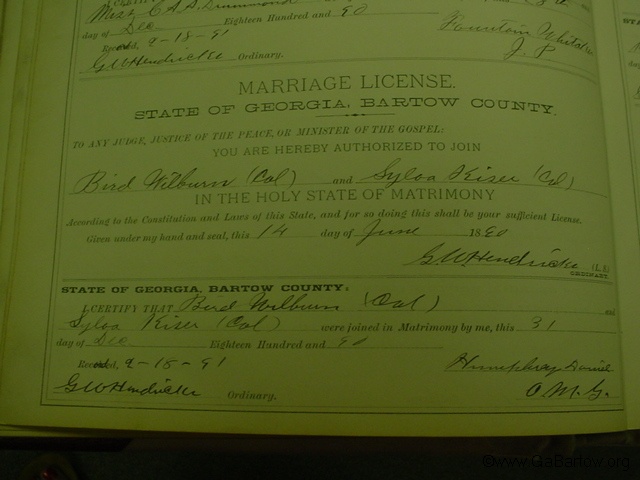 Miss C A S Drummond
day of Dec Eighteen Hundred and 90
Recorded, 9-18-91
Fountain
J. P.
G W Hendricks Ordinary.
MARRIAGE LICENSE.
STATE OF GEORGIA, BARTOW COUNTY.
TO ANY JUDGE, JUSTICE OF THE PEACE, OR MINISTER OF THE GOSPEL:
YOU ARE HEREBY AUTHORIZED TO JOIN
Bird Wilburn (Col) and Sylva Kiser (Col)
IN THE HOLY STATE OF MATRIMONY
According to the Constitution and Laws of this State, and for so doing this shall be your sufficient License.
Given under my hand and seal, this 14 day of June 1890
G W Hendricks (L.S)
ORDINARY.
STATE OF GEORGIA, BARTOW COUNTY:
I CERTIFY THAT Bird Wilburn (Col) and
Sylva Kiser (Col) were joined in Matrimony by me, this 31
day of Dec Eighteen Hundred and 90
Recorded, 9-18-91
Humphrey Daniel
G W Hendricks Ordinary.
O. M. G.
©www.GaBartow.org